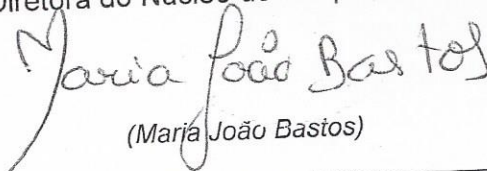 Diretora do Núcleo de
Maria João Bastos
(Maria João Bastos)